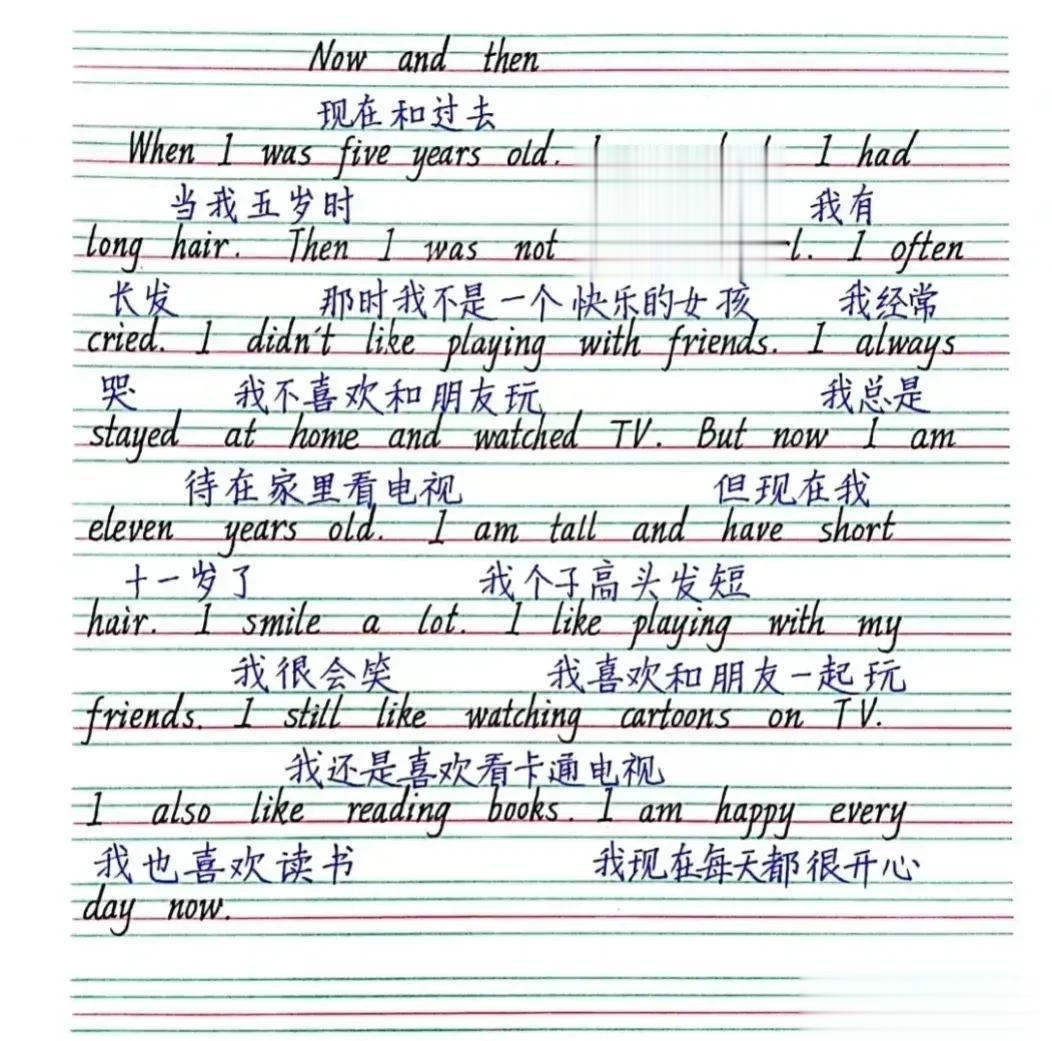 Now and then
现在和过去
When I was five years old. I had
当我五岁时 我有
long hair. Then I was not l. I often
长发 那时我不是一个快乐的女孩 我经常
cried. I didn't like playing with friends. I always
哭 我不喜欢和朋友玩 我总是
stayed at home and watched TV. But now I am
待在家里看电视 但现在我
eleven years old. I am tall and have short
十一岁了 我个子高头发短
hair. I smile a lot. I like playing with my
我很会笑 我喜欢和朋友一起玩
friends. I still like watching cartoons on TV.
我还是喜欢看卡通电视
I also like reading books. I am happy every
我也喜欢读书 我现在每天都很开心
day now.